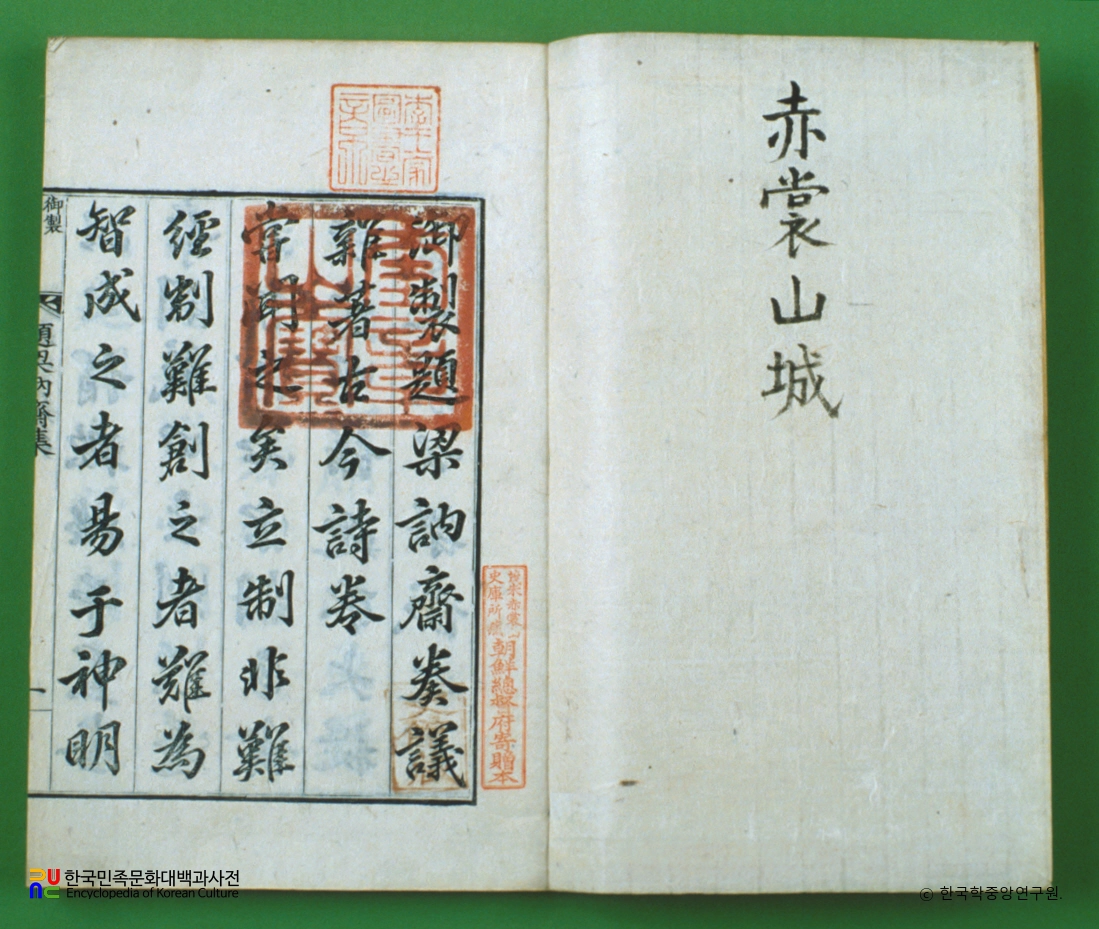 赤裳山城
李王家圖書之章
御製題梁訥齋奏議
雜著古今詩卷
嘗聞之矣立制非難
經制難創之者難為
智成之者易于神明
御製
題梁訥齋集
一
茂朱赤裳山
史庫所藏
朝鮮總督府寄贈本
한국민족문화대백과사전
Encyclopedia of Korean Culture
© 한국학중앙연구원.